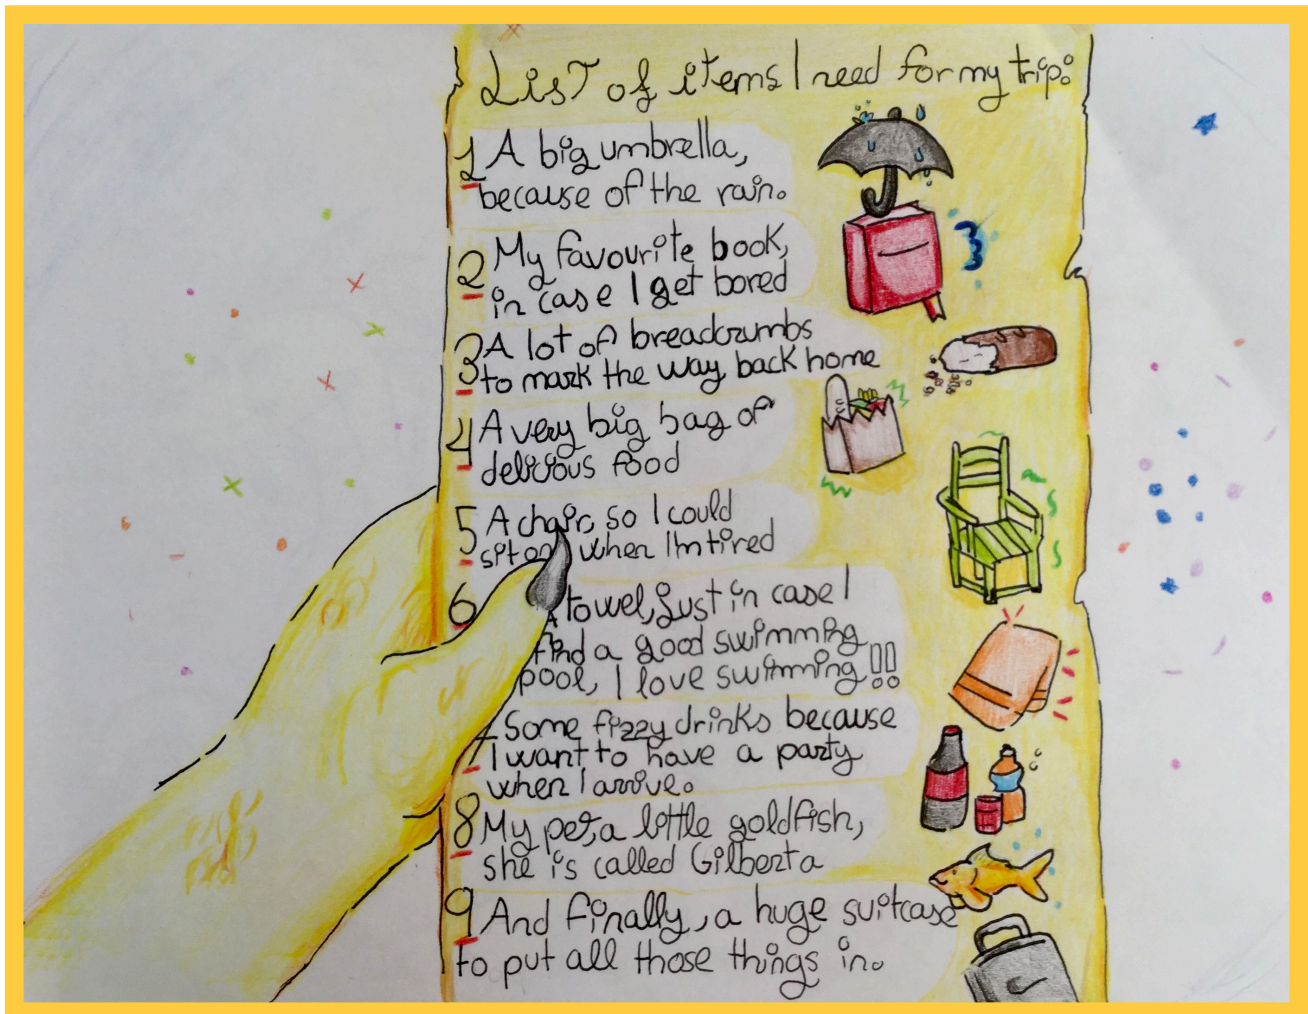 List of items I need for my trip:
1 A big umbrella,
because of the rain.
2 My favourite book,
in case I get bored
3 A lot of breadcrumbs
to mark the way back home
4 A very big bag of
delicious food
5 A chair, so I could
sit on when I'm tired
6 towel, just in case I
find a good swimming
pool, I love swimming!!
7 Some fizzy drinks because
I want to have a party
when I arrive.
8 My pet, a little goldfish,
she is called Gilberta
9 And finally, a huge suitcase
to put all those things in.